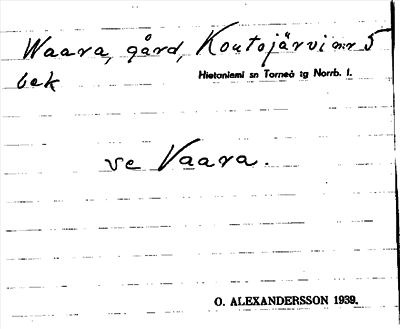 Waara, gård, Koutojärvi nr 5
bek Hietaniemi sn Torneå tg Norrb. l.
se Vaara.
O. ALEXANDERSSON 1939.